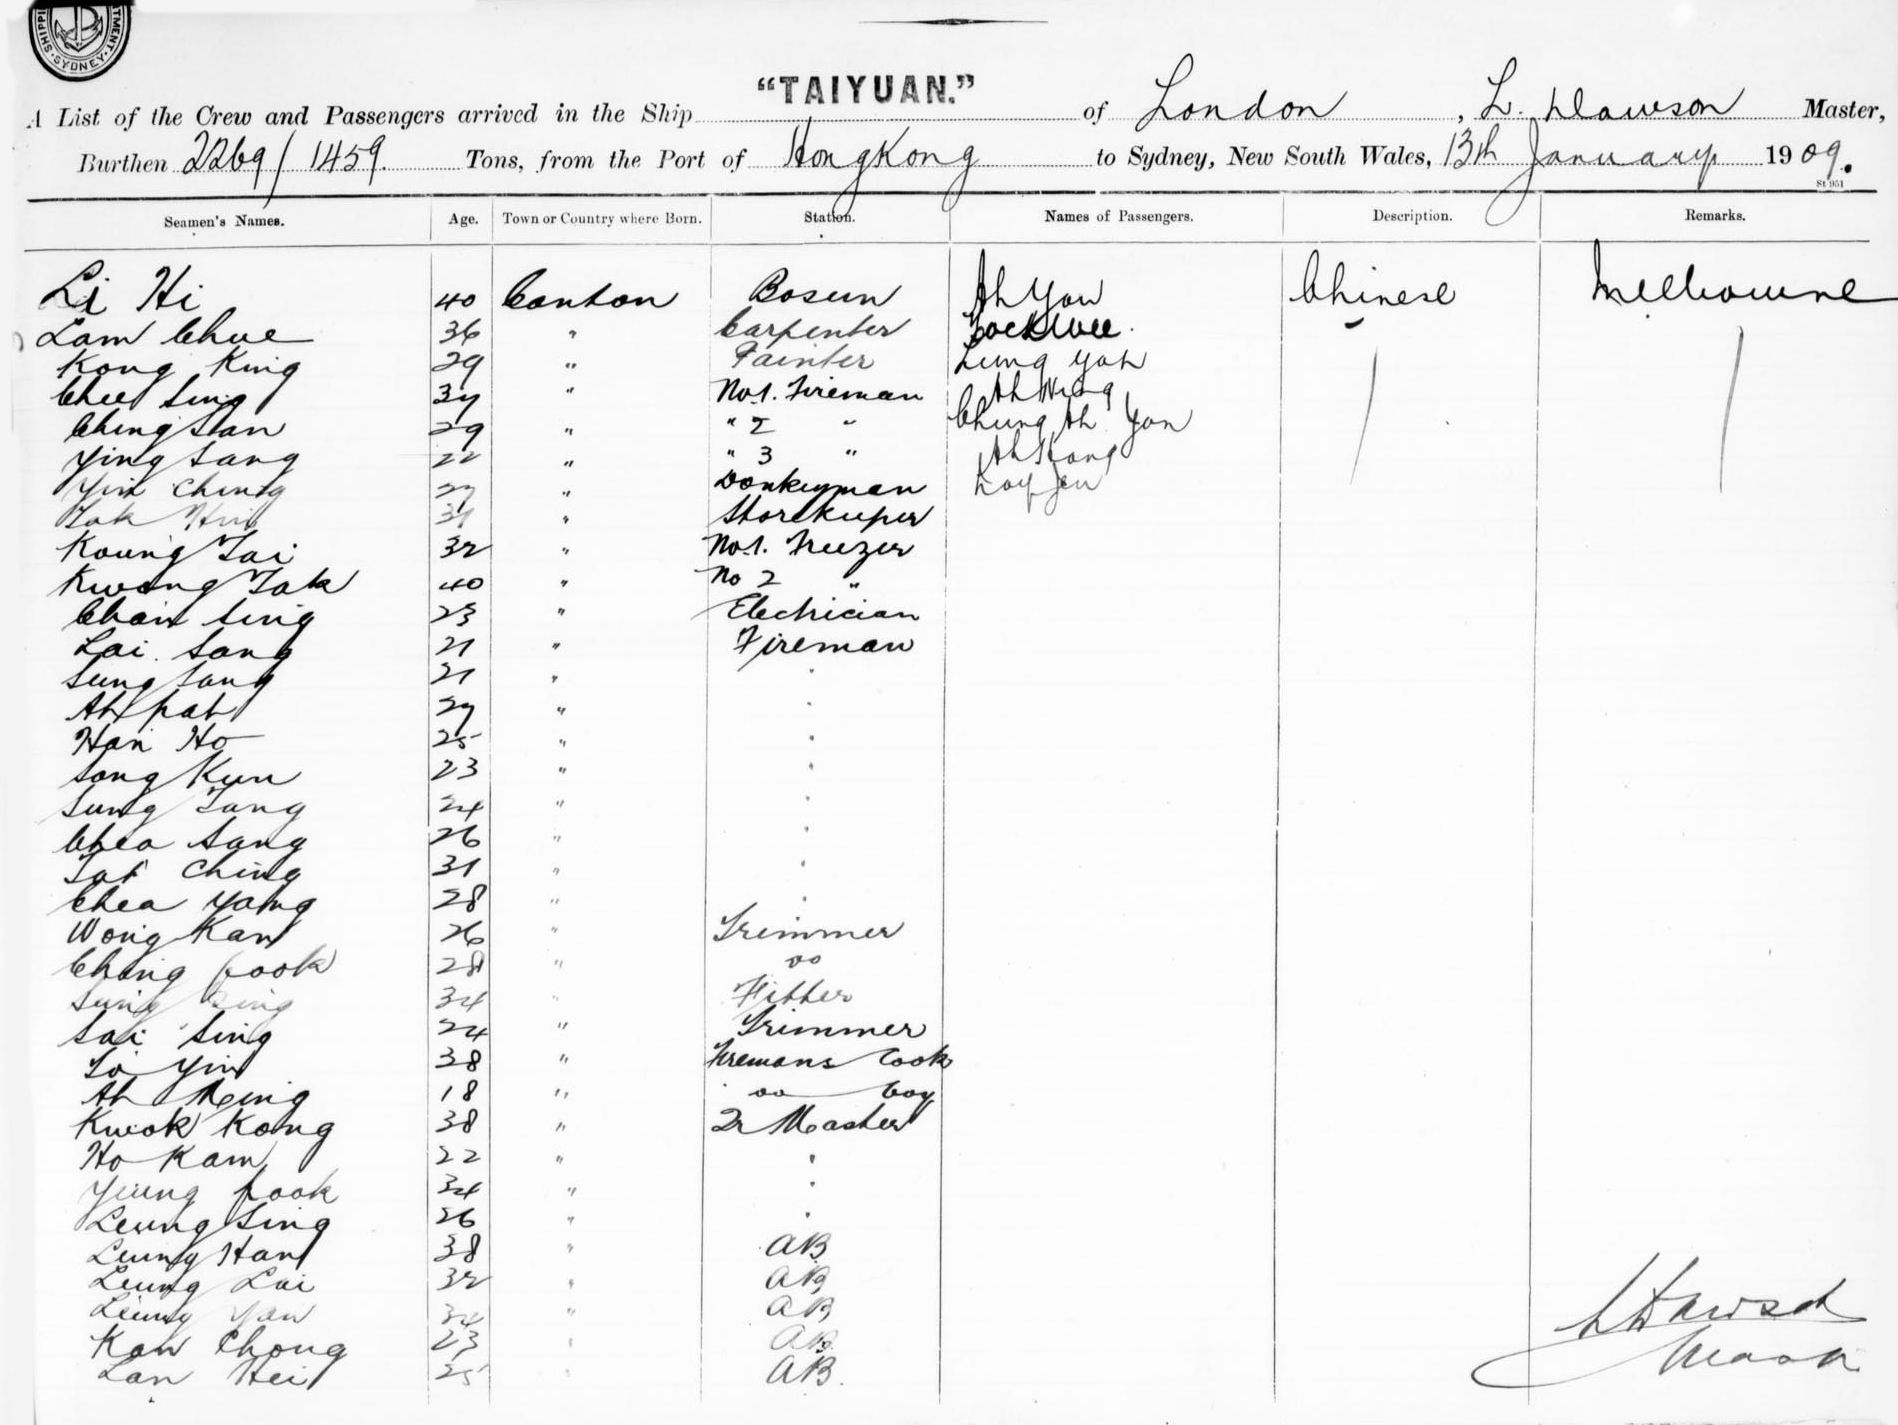 SHIPPI TMENT · SYDNEY ·
"TAIYUAN."
A List of the Crew and Passengers arrived in the Ship of London, L. Dawson Master,
Burthen 2269 / 1459. Tons, from the Port of HongKong to Sydney, New South Wales, 13th January 1909.
St 951
Seamen's Names. Age. Town or Country where Born. Station. Names of Passengers. Description. Remarks.
Li Hi 40 Canton Bosun Ah You Chinese Melbourne
Lam Chue 36 " Carpenter
Kong King 29 " Painter Lung Yah
Chee Sing 37 " No 1. Fireman Ah Wing
Ching San 29 " " 2 " Chung Ah Yon
Ying Sang 22 " " 3 " Ah Hong
Yin Ching 27 " Donkeyman
Tak 31 " Storekeeper
Koung Tai 32 " No 1. Freezer
Kwong Tak 40 " No 2 "
Chan Sing 23 " Electrician
Lai Sang 21 " Fireman
Sung Sang 21 " "
Ah pat 27 " "
Han Ho 25 " "
Song Kun 23 " "
Sung Tang 24 " "
Chea Sang 26 " "
Tat Ching 31 " "
Chea Yang 28 " "
Wong Kan 26 " Trimmer
Ching fook 28 " do
Sung Sing 34 " Fitter
Sai Sing 24 " Trimmer
To Yin 38 " Firemans Cook
Ah Meing 18 " do boy
Kwok Kong 38 " Qr Master
Ho Kam 22 " "
Yeung fook 34 " "
Leung Sing 26 " "
Leung Han 38 " AB
Leung Lai 32 " AB
Leung Yan 34 " AB
Kan Chong 23 " AB
Lan Hei 25 " AB.
L Dawson